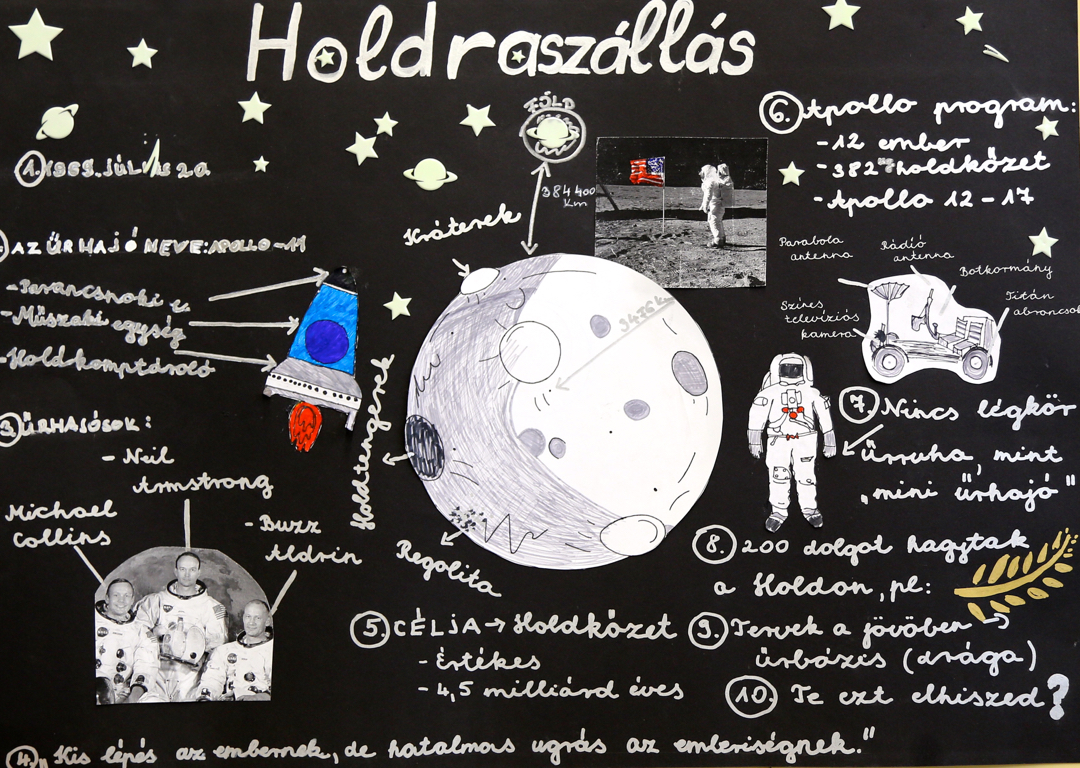 Holdraszállás
1. 1969. JÚLIUS 20.
AZ ŰRHAJÓ NEVE: APOLLO-11
-Parancsnoki e.
-Műszaki egység
-Holdkomptároló
3. ŰRHAJÓSOK:
- Neil
Armstrong
Michael
Collins
- Buzz
Aldrin
4. "Kis lépés az embernek, de hatalmas ugrás az emberiségnek."
FÖLD
384 400
Km
Kráterek
3476 km
Holdtengerek
Regolita
5. CÉLJA → Holdkőzet
- Értékes
- 4,5 milliárd éves
6. Apollo program:
- 12 ember
- 382 kg holdkőzet
- Apollo 12-17
Parabola
antenna
Rádió
antenna
Botkormány
Színes
televíziós
kamera
Titán
abroncsok
7. Nincs légkör
Űrruha, mint
"mini űrhajó"
8. 200 dolgot hagytak
a Holdon, pl:
9. Tervek a jövőben →
űrbázis (drága)
10. Te ezt elhiszed?